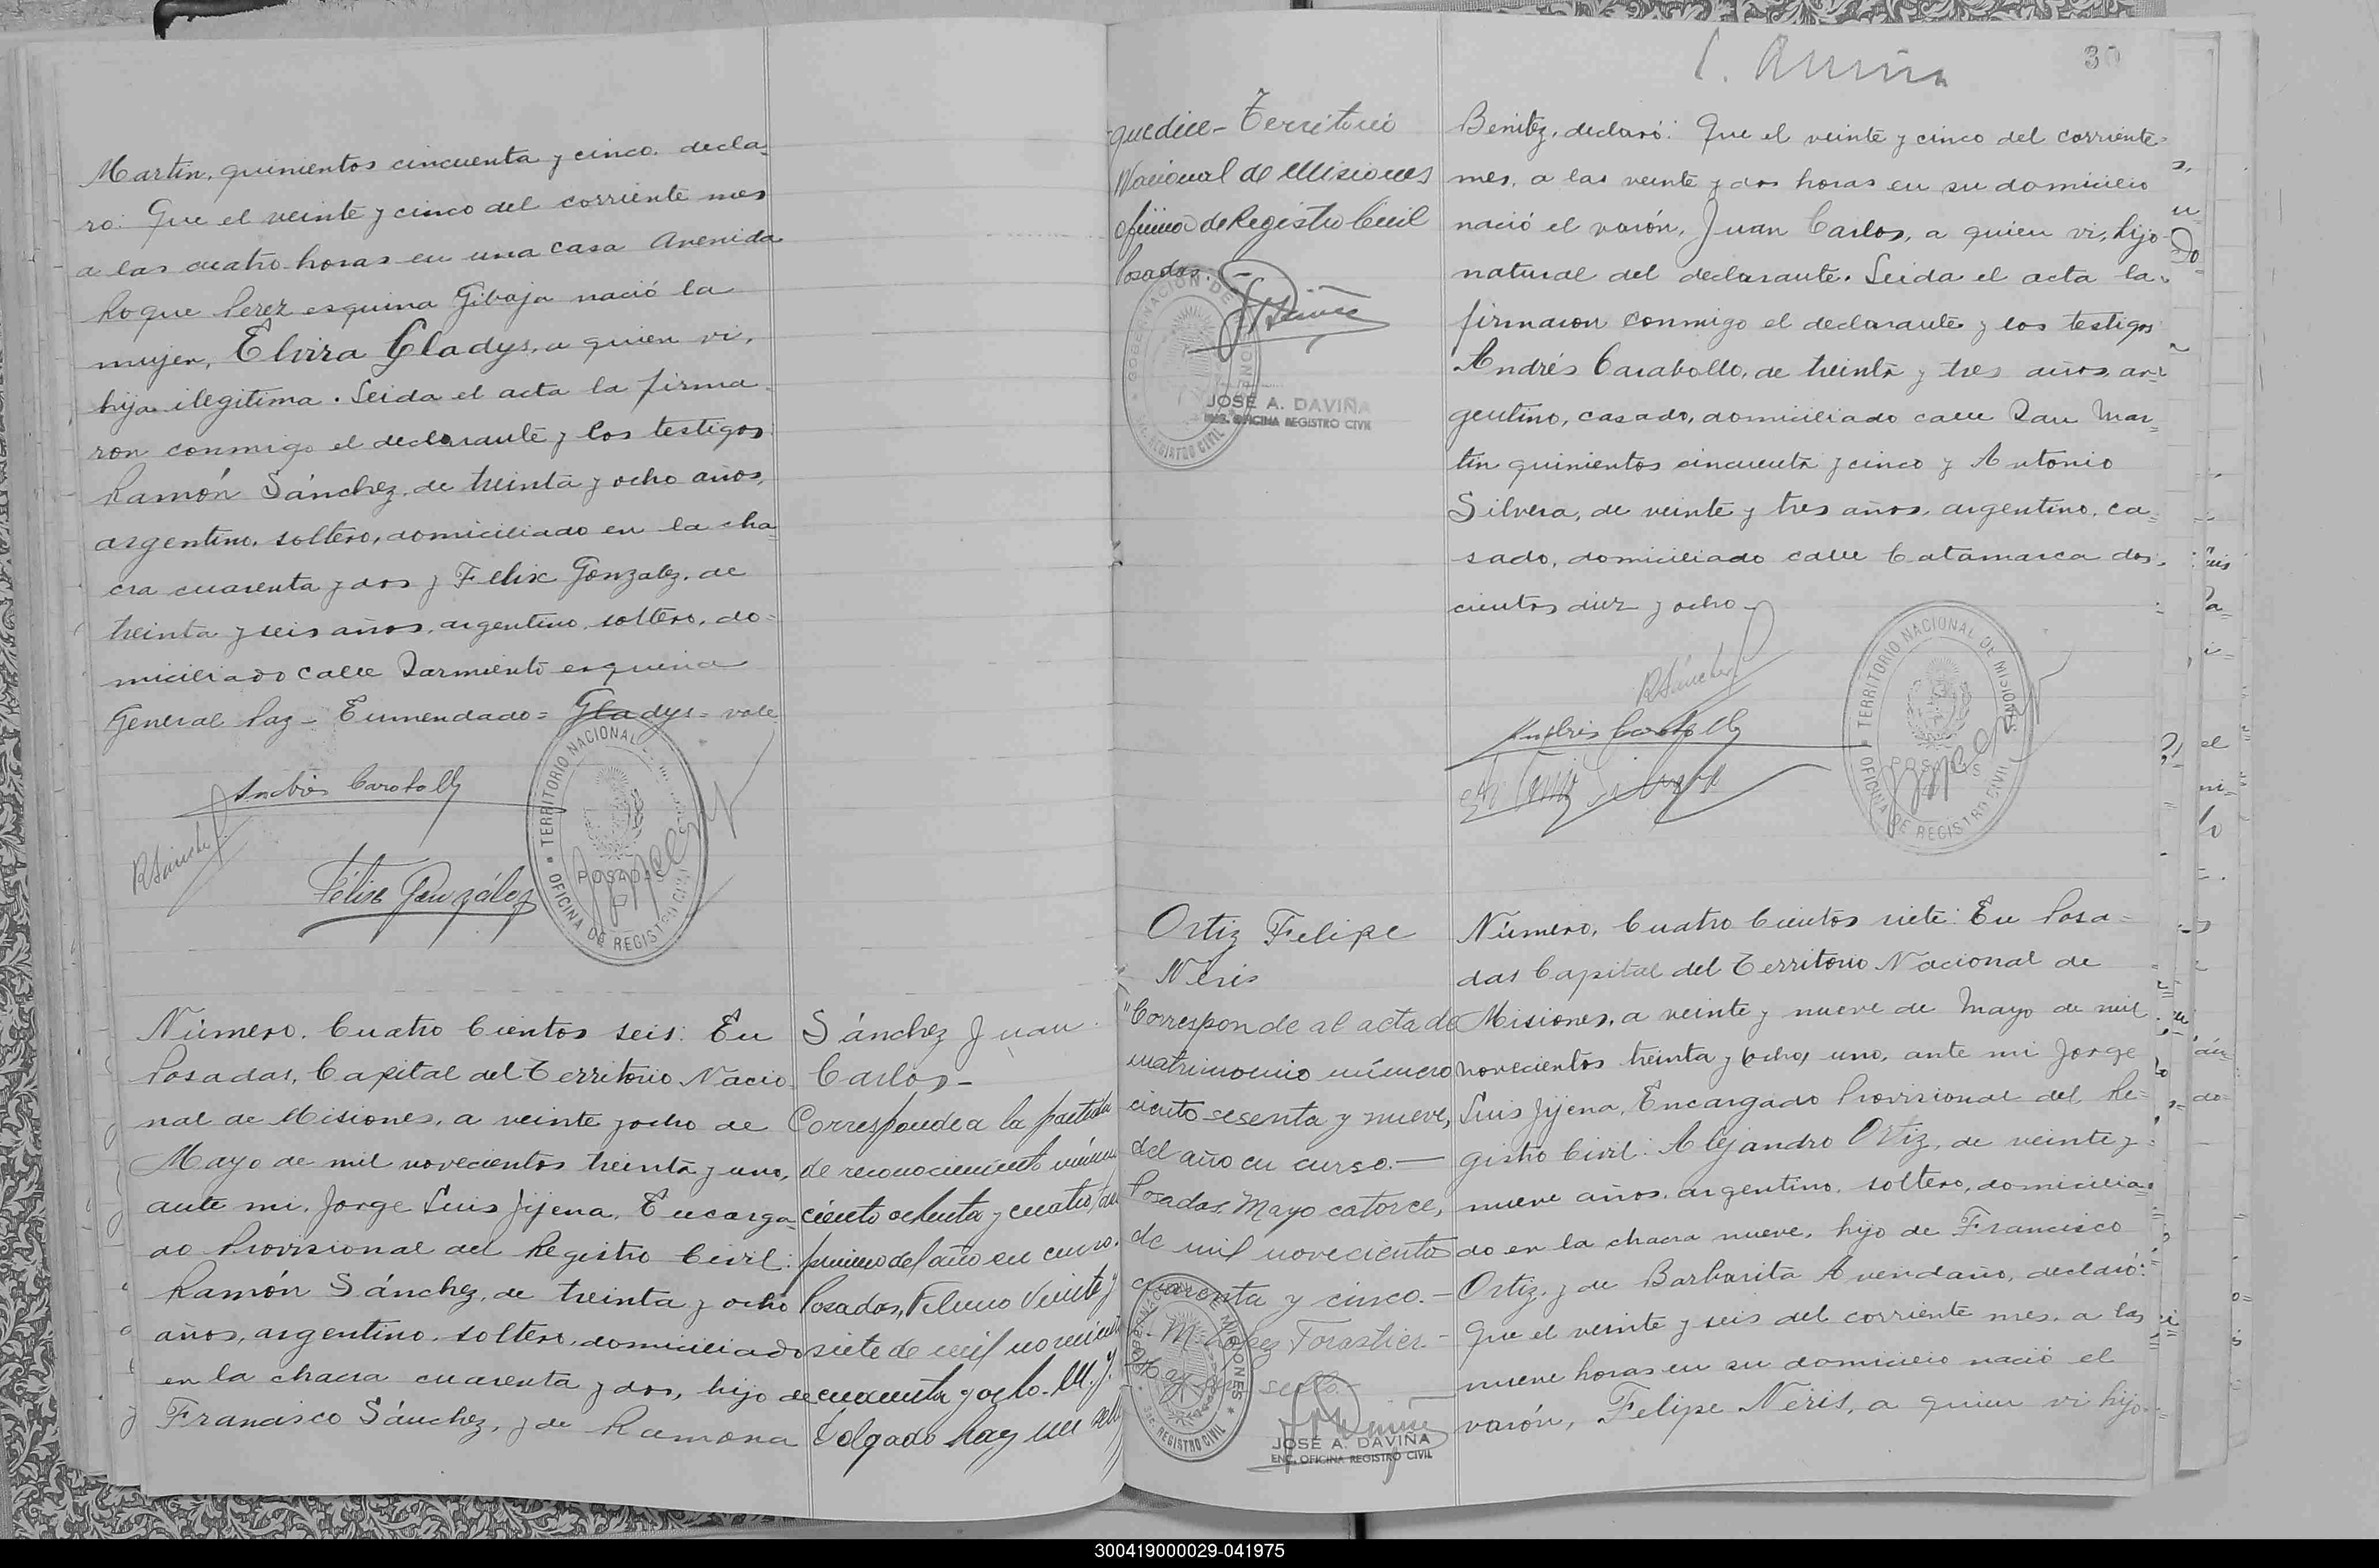 Martin, quinientos cincuenta y cinco, decla-
ró: Que el veinte y cinco del corriente mes
a las cuatro horas en una casa Avenida
Roque Perez esquina Gibaja nació la
mujer, Elvira Gladys, a quien vi,
hija ilegitima. Leida el acta la firma-
ron conmigo el declarante y los testigos
Ramón Sánchez, de treinta y ocho años,
argentino, soltero, domiciliado en la cha-
cra cuarenta y dos y Felix Gonzalez, de
treinta y seis años, argentino, soltero, do-
miciliado calle Sarmiento esquina
General Paz - Enmendado = Gladys = vale
Andrés Caraballo
RSánchez
Félix González
TERRITORIO NACIONAL
POSADAS
OFICINA DE REGISTRO CIVIL
Número, Cuatro Cientos seis: En
Posadas, Capital del Territorio Nacio-
nal de Misiones, a veinte y ocho de
Mayo de mil novecientos treinta y uno,
ante mi, Jorge Luis Jijena, Encarga-
do Provisional del Registro Civil:
Ramón Sánchez, de treinta y ocho
años, argentino, soltero, domiciliado
en la chacra cuarenta y dos, hijo de
Francisco Sánchez, y de Ramona
Sánchez Juan
Carlos -
Corresponde a la partida
de reconocimiento número
ciento ochenta y cuatro, del
primero del año en curso.
Posadas, Febrero Veinte y
siete de mil novecientos
cuarenta y ocho. M. J.
Delgado hay un sello
30
que dice - Territorio
Nacional de Misiones
oficina de Registro Civil
Posadas. -
GOBERNACIÓN DE MISIONES
REGISTRO CIVIL
JOSÉ A. DAVIÑA
ENC. OFICINA REGISTRO CIVIL
Benitez, declaró: Que el veinte y cinco del corriente
mes, a las veinte y dos horas en su domicilio
nació el varón, Juan Carlos, a quien vi, hijo
natural del declarante. Leida el acta la
firmaron conmigo el declarante y los testigos
Andrés Caraballo, de treinta y tres años, ar-
gentino, casado, domiciliado calle San Mar-
tin quinientos cincuenta y cinco y Antonio
Silvera, de veinte y tres años, argentino, ca-
sado, domiciliado calle Catamarca dos-
cientos diez y ocho -
RSánchez
Andrés Caraballo
TERRITORIO NACIONAL DE MISIONES
POSADAS
OFICINA DE REGISTRO CIVIL
Ortiz Felipe
Neris
"Corresponde al acta de
matrimonio número
ciento sesenta y nueve,
del año en curso. -
Posadas, Mayo catorce,
de mil novecientos
cuarenta y cinco. -
M. Lopez Torastier. -
Hay un sello. -
GOBERNACIÓN DE MISIONES
SEC. REGISTRO CIVIL
JOSÉ A. DAVIÑA
ENC. OFICINA REGISTRO CIVIL
Número, Cuatro Cientos siete: En Posa-
das Capital del Territorio Nacional de
Misiones, a veinte y nueve de Mayo de mil
novecientos treinta y ocho, uno, ante mi Jorge
Luis Jijena, Encargado Provisional del Re-
gistro Civil: Alejandro Ortiz, de veinte y
nueve años, argentino, soltero, domicilia-
do en la chacra nueve, hijo de Francisco
Ortiz, y de Barbarita Avendaño, declaró:
Que el veinte y seis del corriente mes, a las
nueve horas en su domicilio nació el
varón, Felipe Neris, a quien vi hijo
300419000029-041975